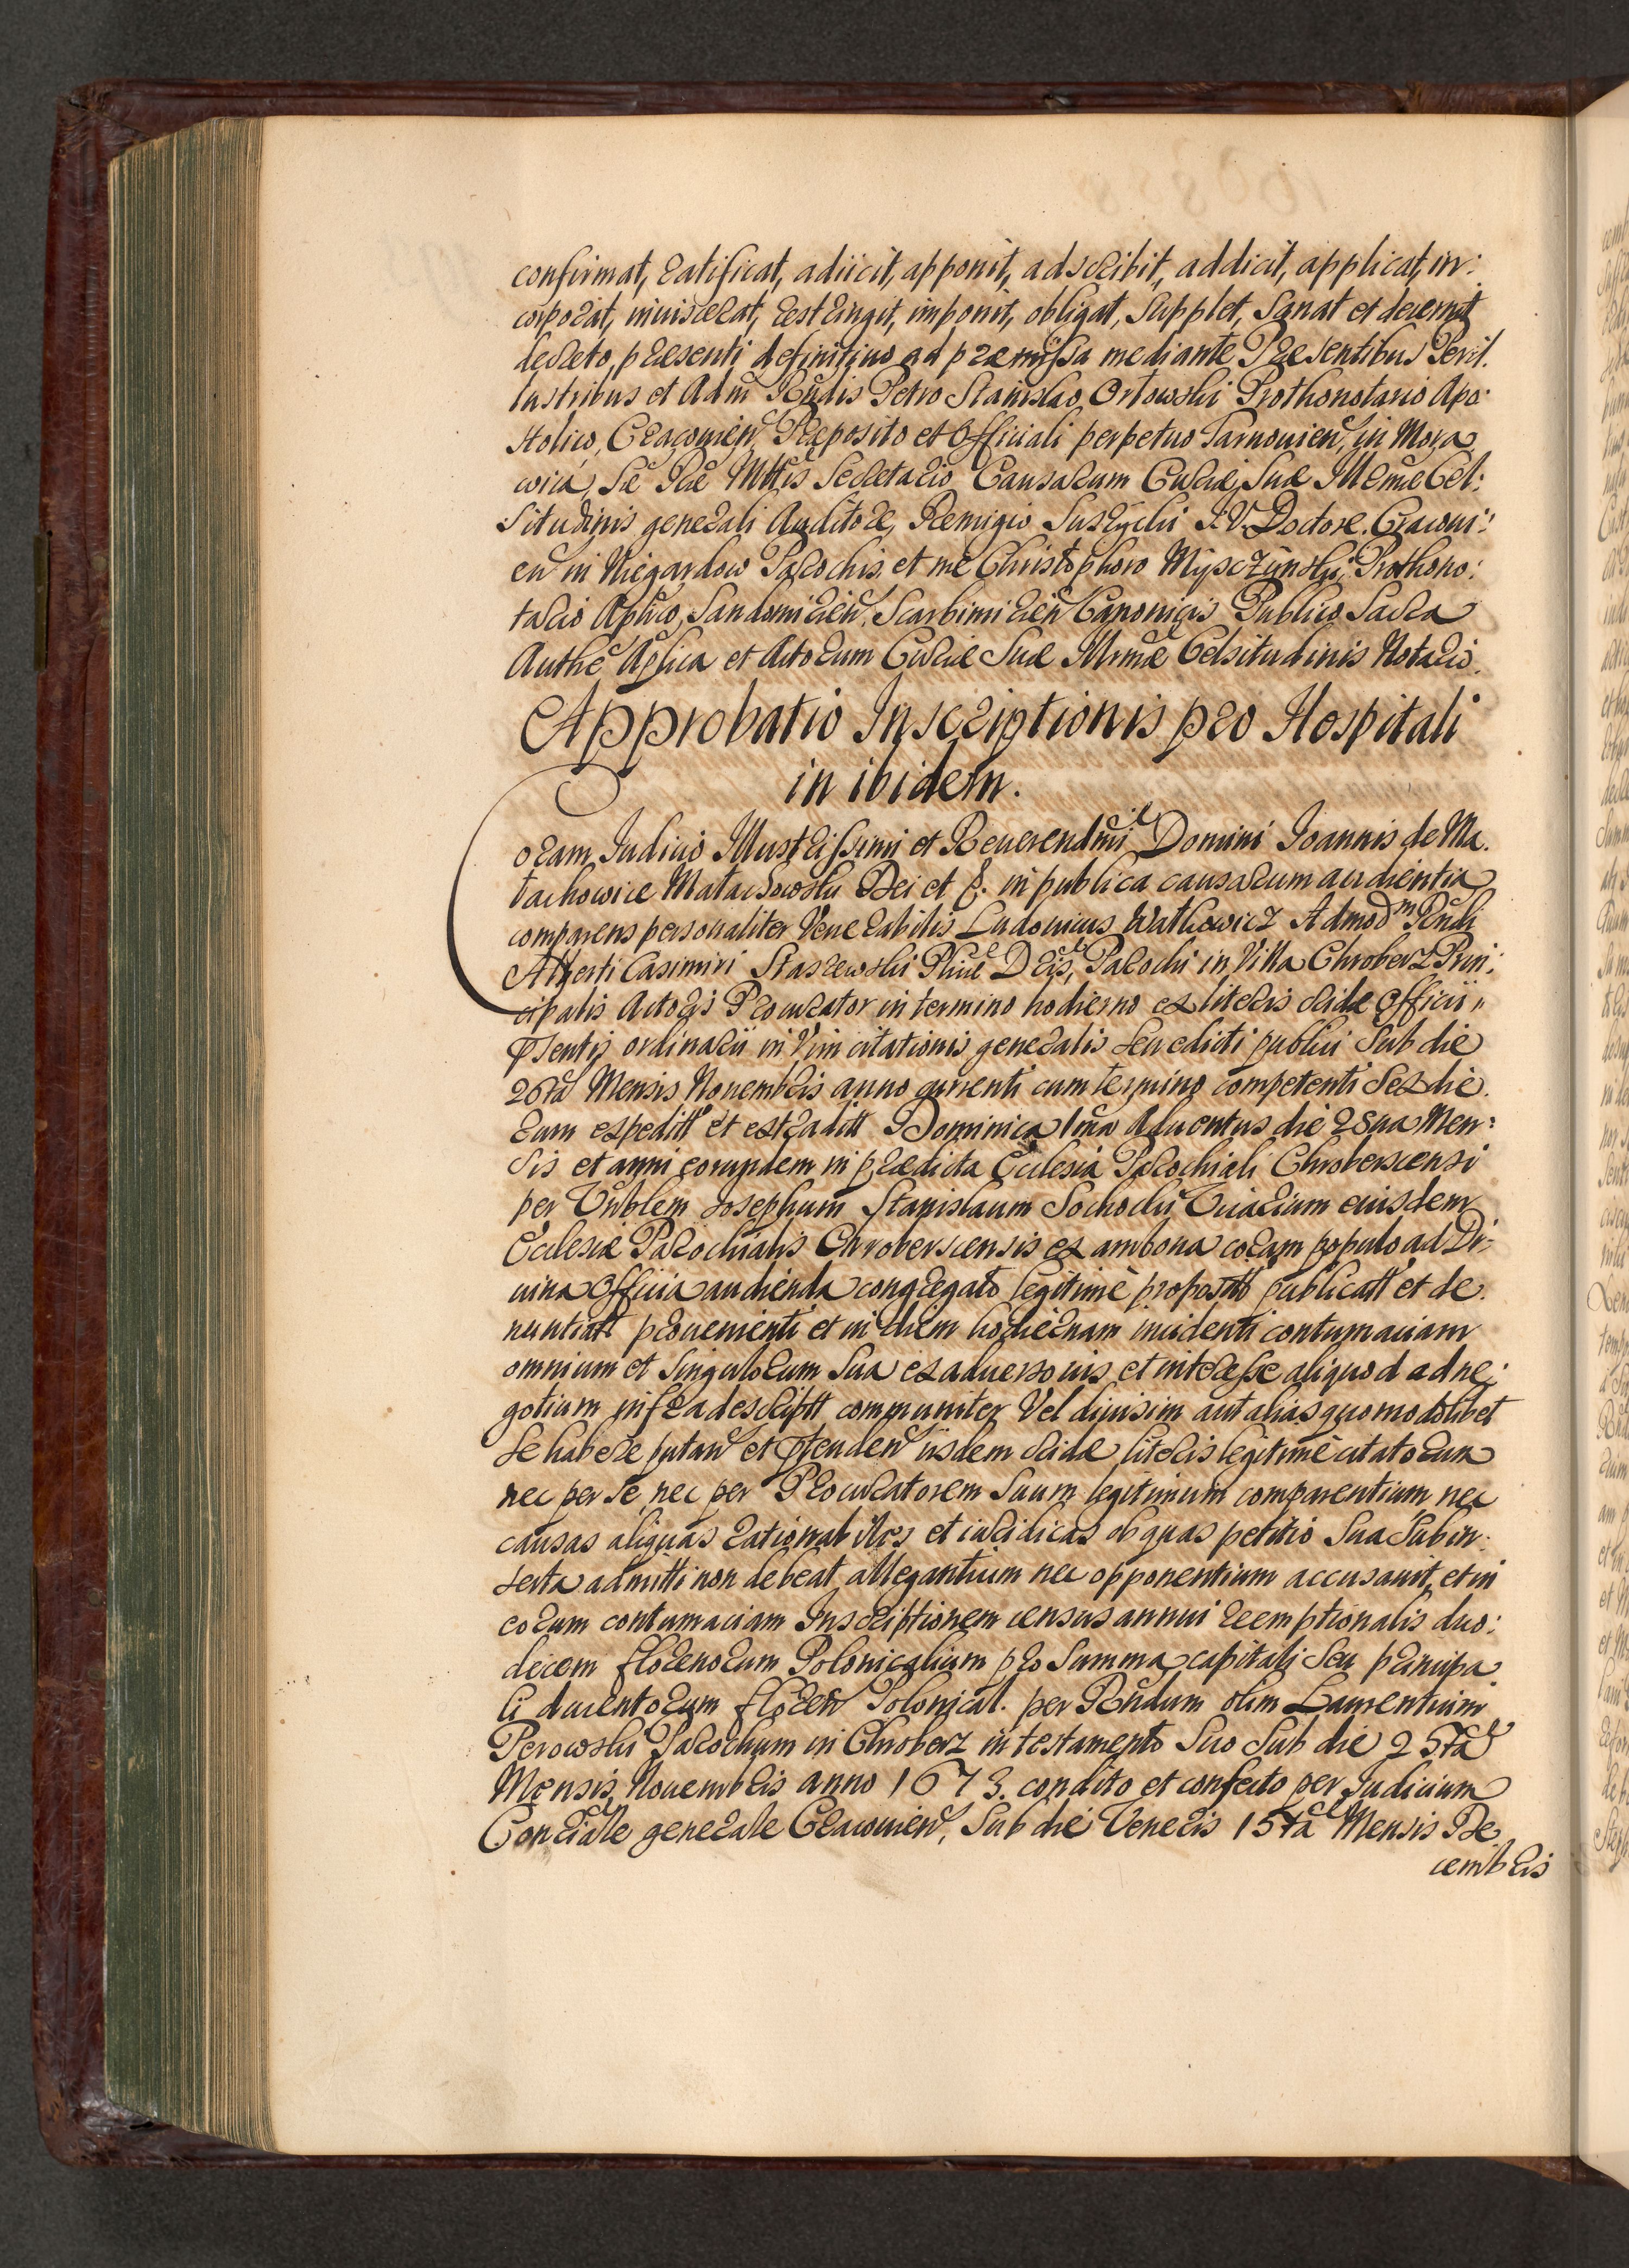 confirmat, ratificat, adiicit, apponit, adscribit, addicit, applicat, in:
corporat, inviscerat, restringit, imponit, obligat, Supplet, Sanat et decernit
decreto, præsenti definitivo ad præmissa mediante Præsentibus Peril.
lustribus et Adm Rndis Petro Stanislao Orłowski Prothonotario Apo:
stolico, Cracovien, Præposito et Officiali perpetuo Tarnovien, in Mora
wica, Sæ Ræ Mttis Secretario Causarum Curiæ Suæ Illmæ Cel:
Situdinis generali Auditore, Remigio Suszycki I. V. Doctore. Cracovi:
en in Niegardow Parochis, et me Christophoro Mysczynski Prothono:
tario Aplico, Sandomirien, Scarbimirien Canonicis Publico Sacra
Authe Aplica et Actorum Curiæ Suæ Illrmæ Celsitudinis Notario.
Approbatio Inscriptionis pro Hospitali
in ibidem.
Coram Judicio Illustrissimi et Reverendmi Domini Joannis de Ma.
łachowice Małachowski Dei et &. in publica causarum audientia
comparens personaliter Venerabilis Ludovicus Watkowicz Admodm Rndi
Alberti Casimiri Staszewski Phiæ Dris, Parochi in Villa Chroberz Prin:
cipalis Actoris Procurator in termino hodierno ex literis Officii
Psentis ordinarii in Vim citationis generalis seu edicti publici Sub die
26ta Mensis Novembris anno currenti cum termino competenti Sex die.
rum expeditt et extraditt Dominica 1ma Adventus die 28va Men:
sis et anni eorundem in prædicta Ecclesia Parochiali Chroberscensi
per Vnblem Josephum Stanislaum Sochocki Vicarium eiusdem
Ecclesiæ Parochialis Chroberscensis ex ambona coram populo, ad Di:
vina Officia audienda congregato legitimè propositt publicatt et de.
nuntiatt provenienti et in diem hodiernam incidenti contumaciam
omnium et Singulorum Sua ex adverso ius et interesse aliquod ad ne:
gotium infra descriptt communiter Vel divisim aut alias quomodolibet
Se habere putan et Ptenden iisdem literis legitimè citatorum
nec per Se nec per Procuratorem Suum legitimum comparentium nec
causas aliquas rationabiles et iuridicas ob quas petitio Sua Sub in.
serta admitti non debeat allegantium nec opponentium accusavit, et in
eorum contumaciam Inscriptionem census annui reemptionalis duo:
decem florenorum Polonicalium pro Summa capitali Seu principa
li ducentorum floren Polonical. per Rndum olim Laurentium
Perowski Parochum in Chroberz in testamento Suo Sub die 25ta
Mensis Novembris anno 1673. condito et confecto per Judicium
generale Cracovien, Sub die Veneris 15ta Mensis De
cembris